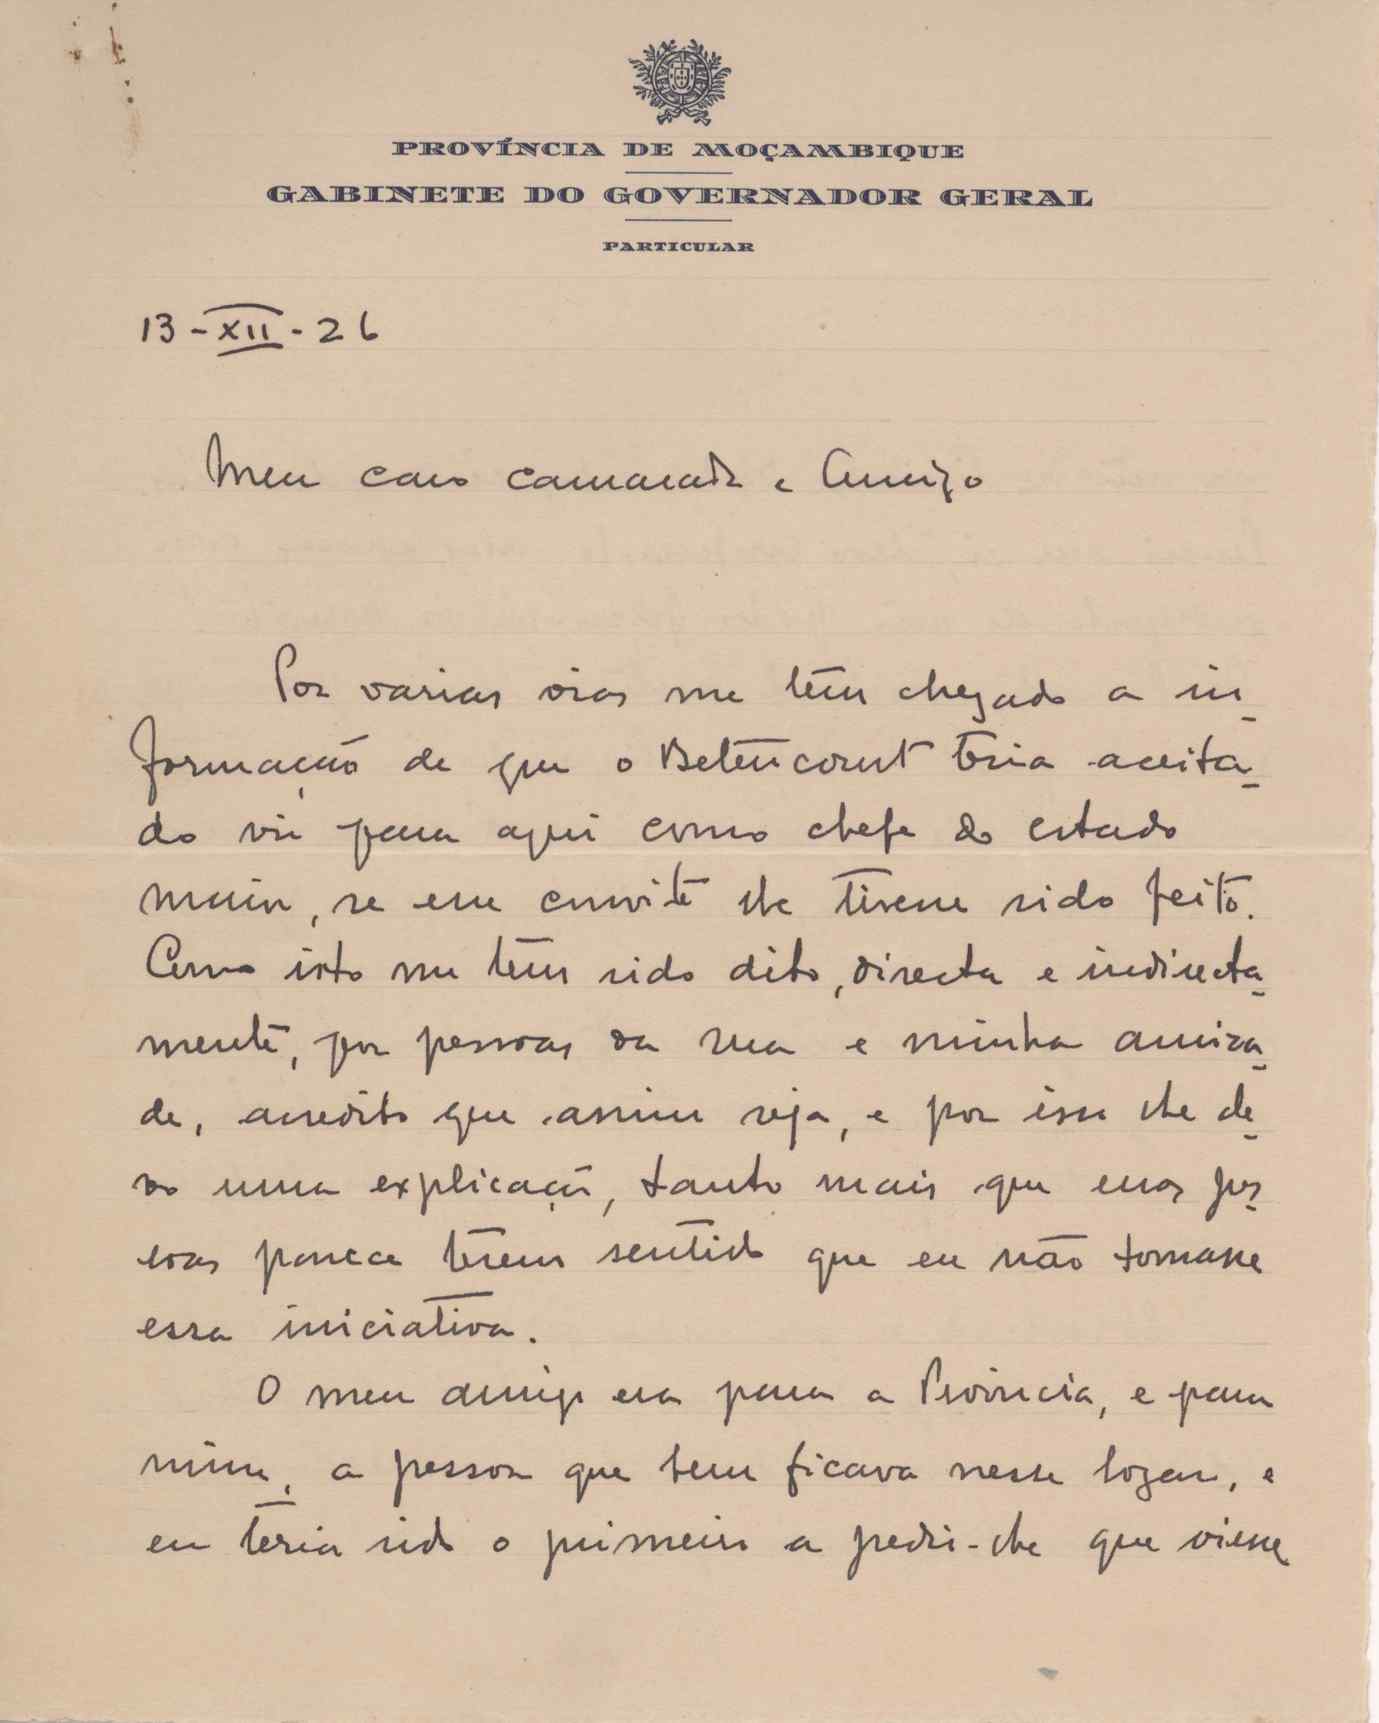 PROVÍNCIA DE MOÇAMBIQUE
GABINETE DO GOVERNADOR GERAL
PARTICULAR
13-XII-26
Meu caro camarada e Amigo
Por varias vias me têm chegado a in-
formação de que o Betencourt teria aceita-
do vir para aqui como chefe do estado
maior, se esse convite lhe tivesse sido feito.
Como isto me tem sido dito, directa e indirecta-
mente, por pessoas da sua e minha amiza-
de, acredito que assim seja, e por isso lhe de-
vo uma explicação, tanto mais que essas pes-
soas parece terem sentido que eu não tomasse
essa iniciativa.
O meu amigo era para a Provincia, e para
mim, a pessoa que bem ficava nesse logar, e
eu teria sido o primeiro a pedir-lhe que viesse